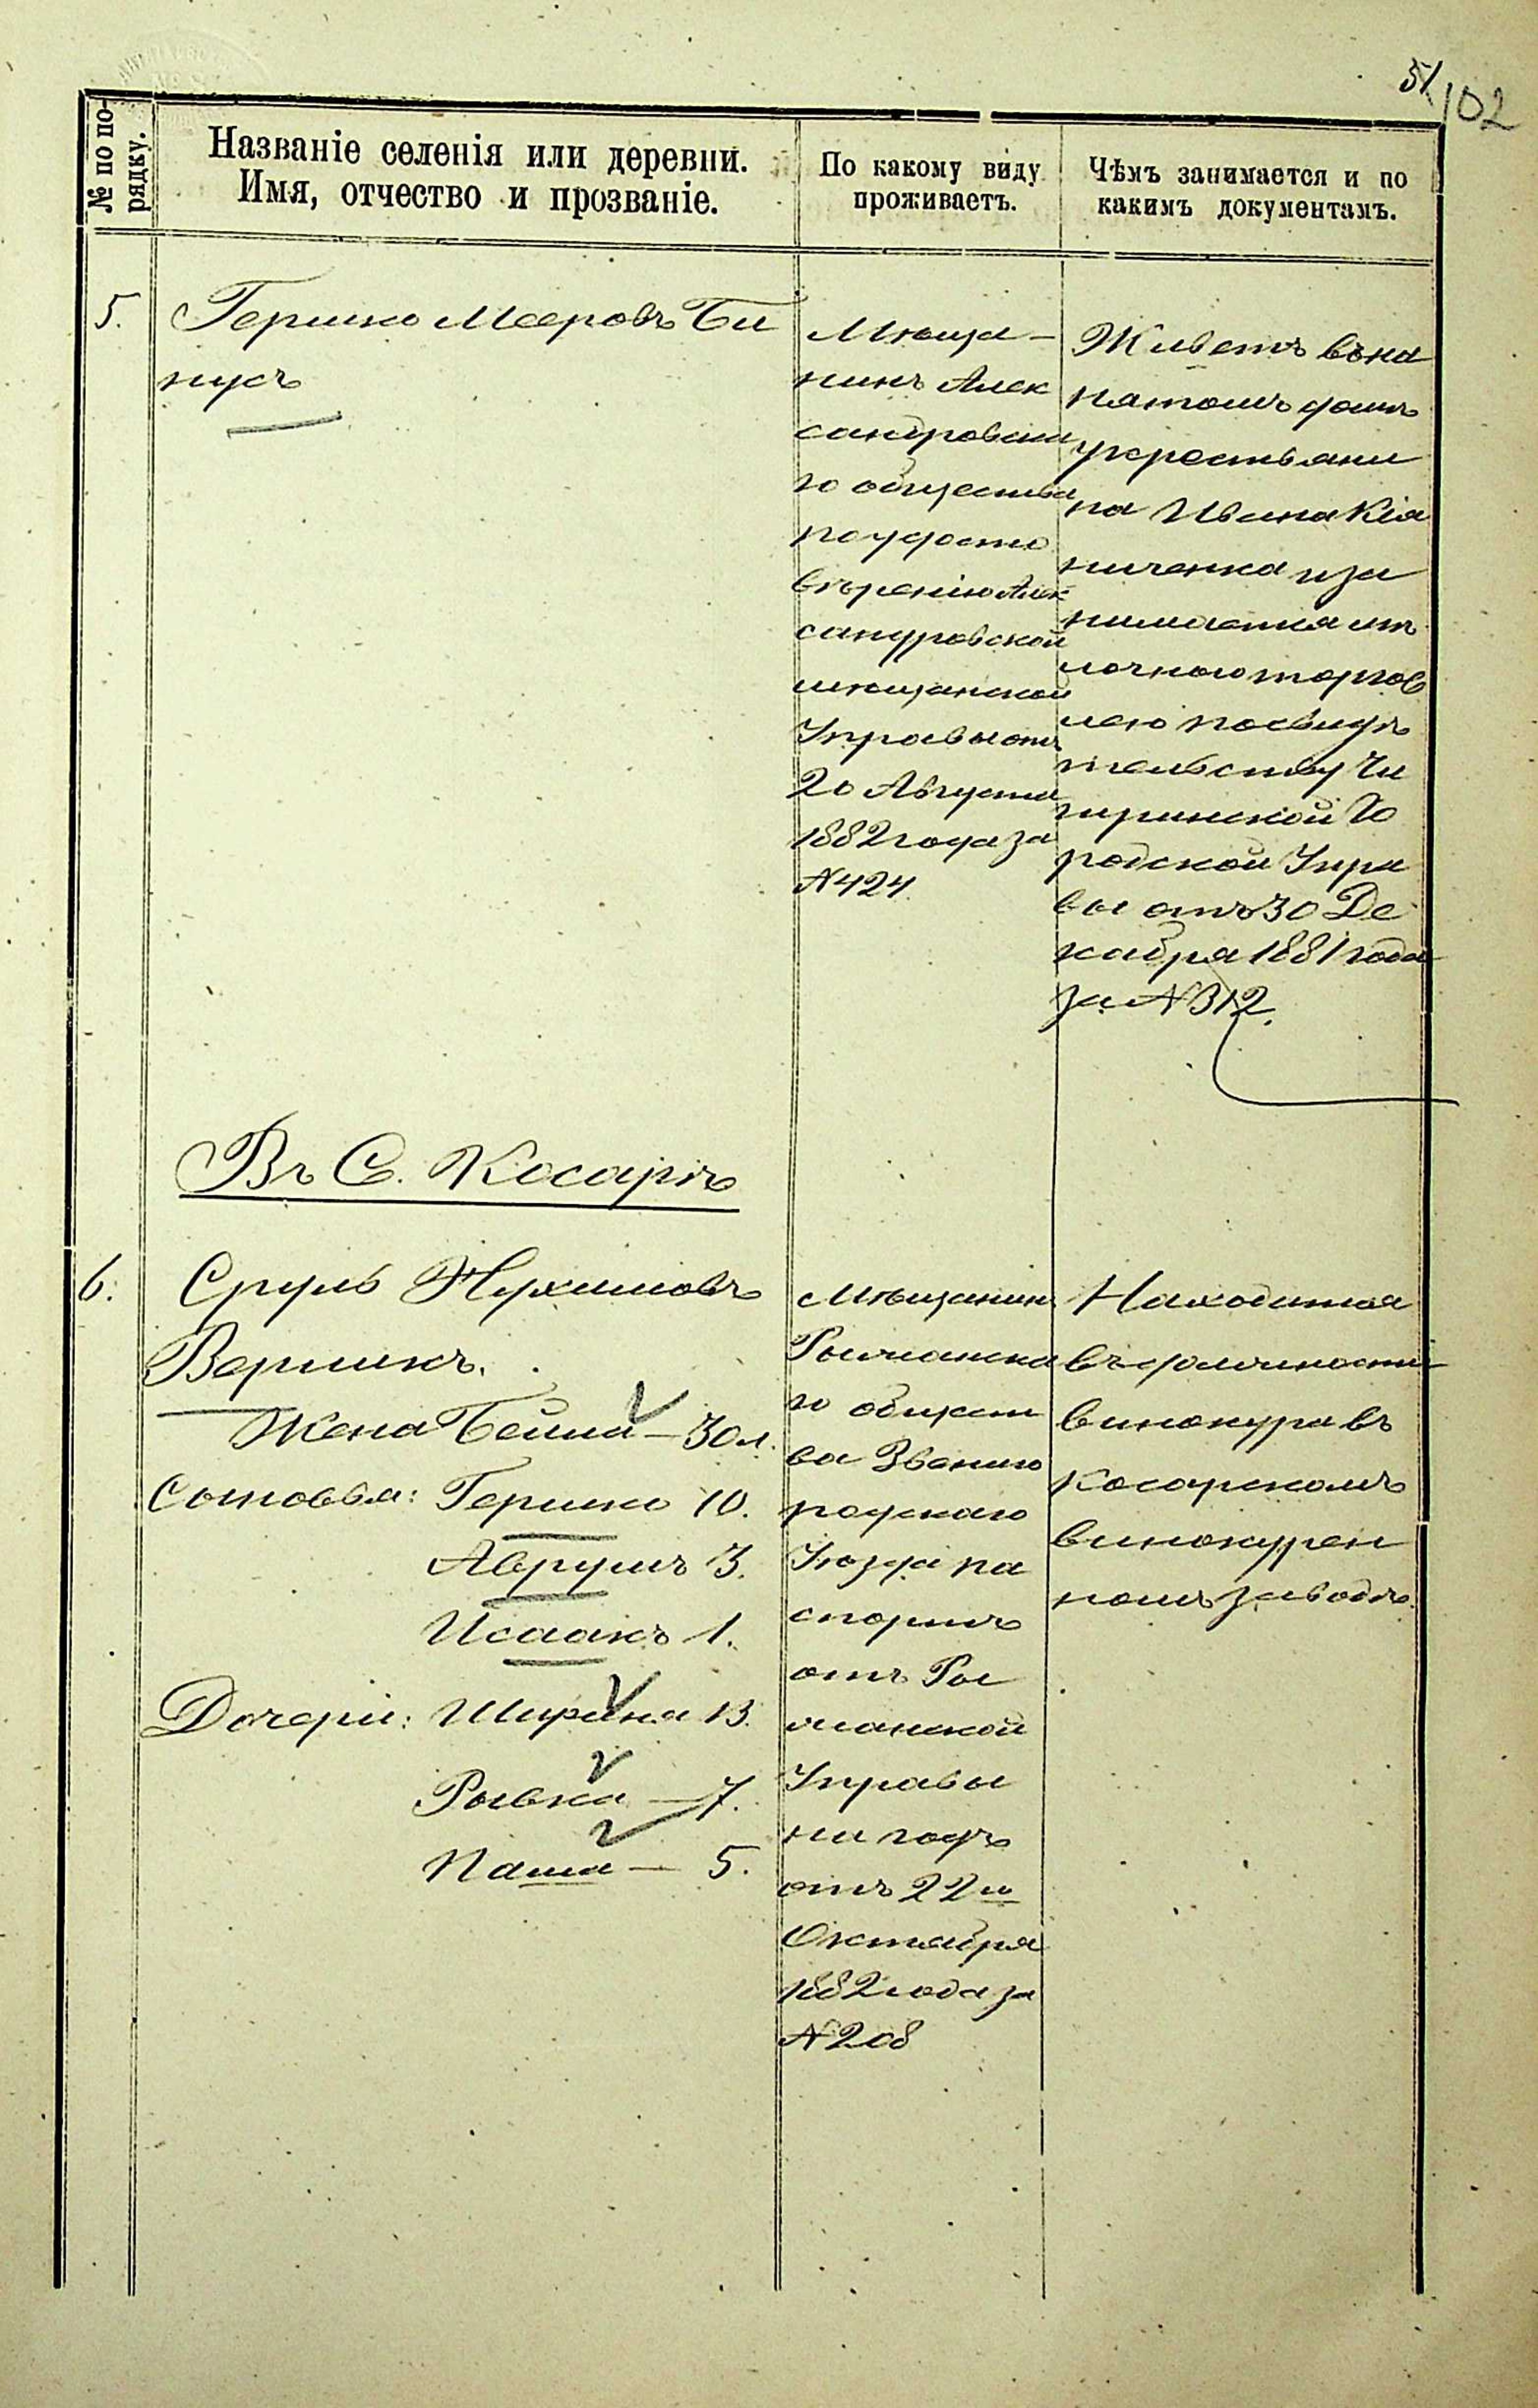 51 102
№ по по-
рядку.
Названіе селенія или деревни.
Имя, отчество и прозваніе.
По какому виду
проживаетъ.
Чѣмъ занимается и по
какимъ документамъ.
5.
Гершко Мееровъ Би
нусъ
Мѣща-
нинъ Алек
сандровска
го общества
по удосто
вѣренію Алек
сандровской
мѣщанской
Управы отъ
20 Августа
1882 года за
№ 424
Живетъ въ на
нятомъ домѣ
у крестьяни
на Ивана Кія
ниченка и за
нимается мѣ
лочною торгов
лею по свидѣ
тельству Чи
гиринской Го
родской Упра
вы отъ 30 Де
кабря 1881 года
за № 312.
Въ С. Косарѣ
6.
Сруль Нухимовъ
Вершикъ.
Жена Бейла - 30 л.
Сыновья: Гершко 10.
Аврумъ 3.
Исаакъ 1.
Дочери: 13.
Рывка - 7.
Паша - 5.
Мѣщанинъ
го общест
ва Звениго
родскаго
Уѣзда па
спортъ
отъ
Управы
на годъ
отъ 22го
Октября
1882 года за
№ 208
Находится
въ должности
винокура въ
Косарскомъ
винокурен
номъ заводѣ.